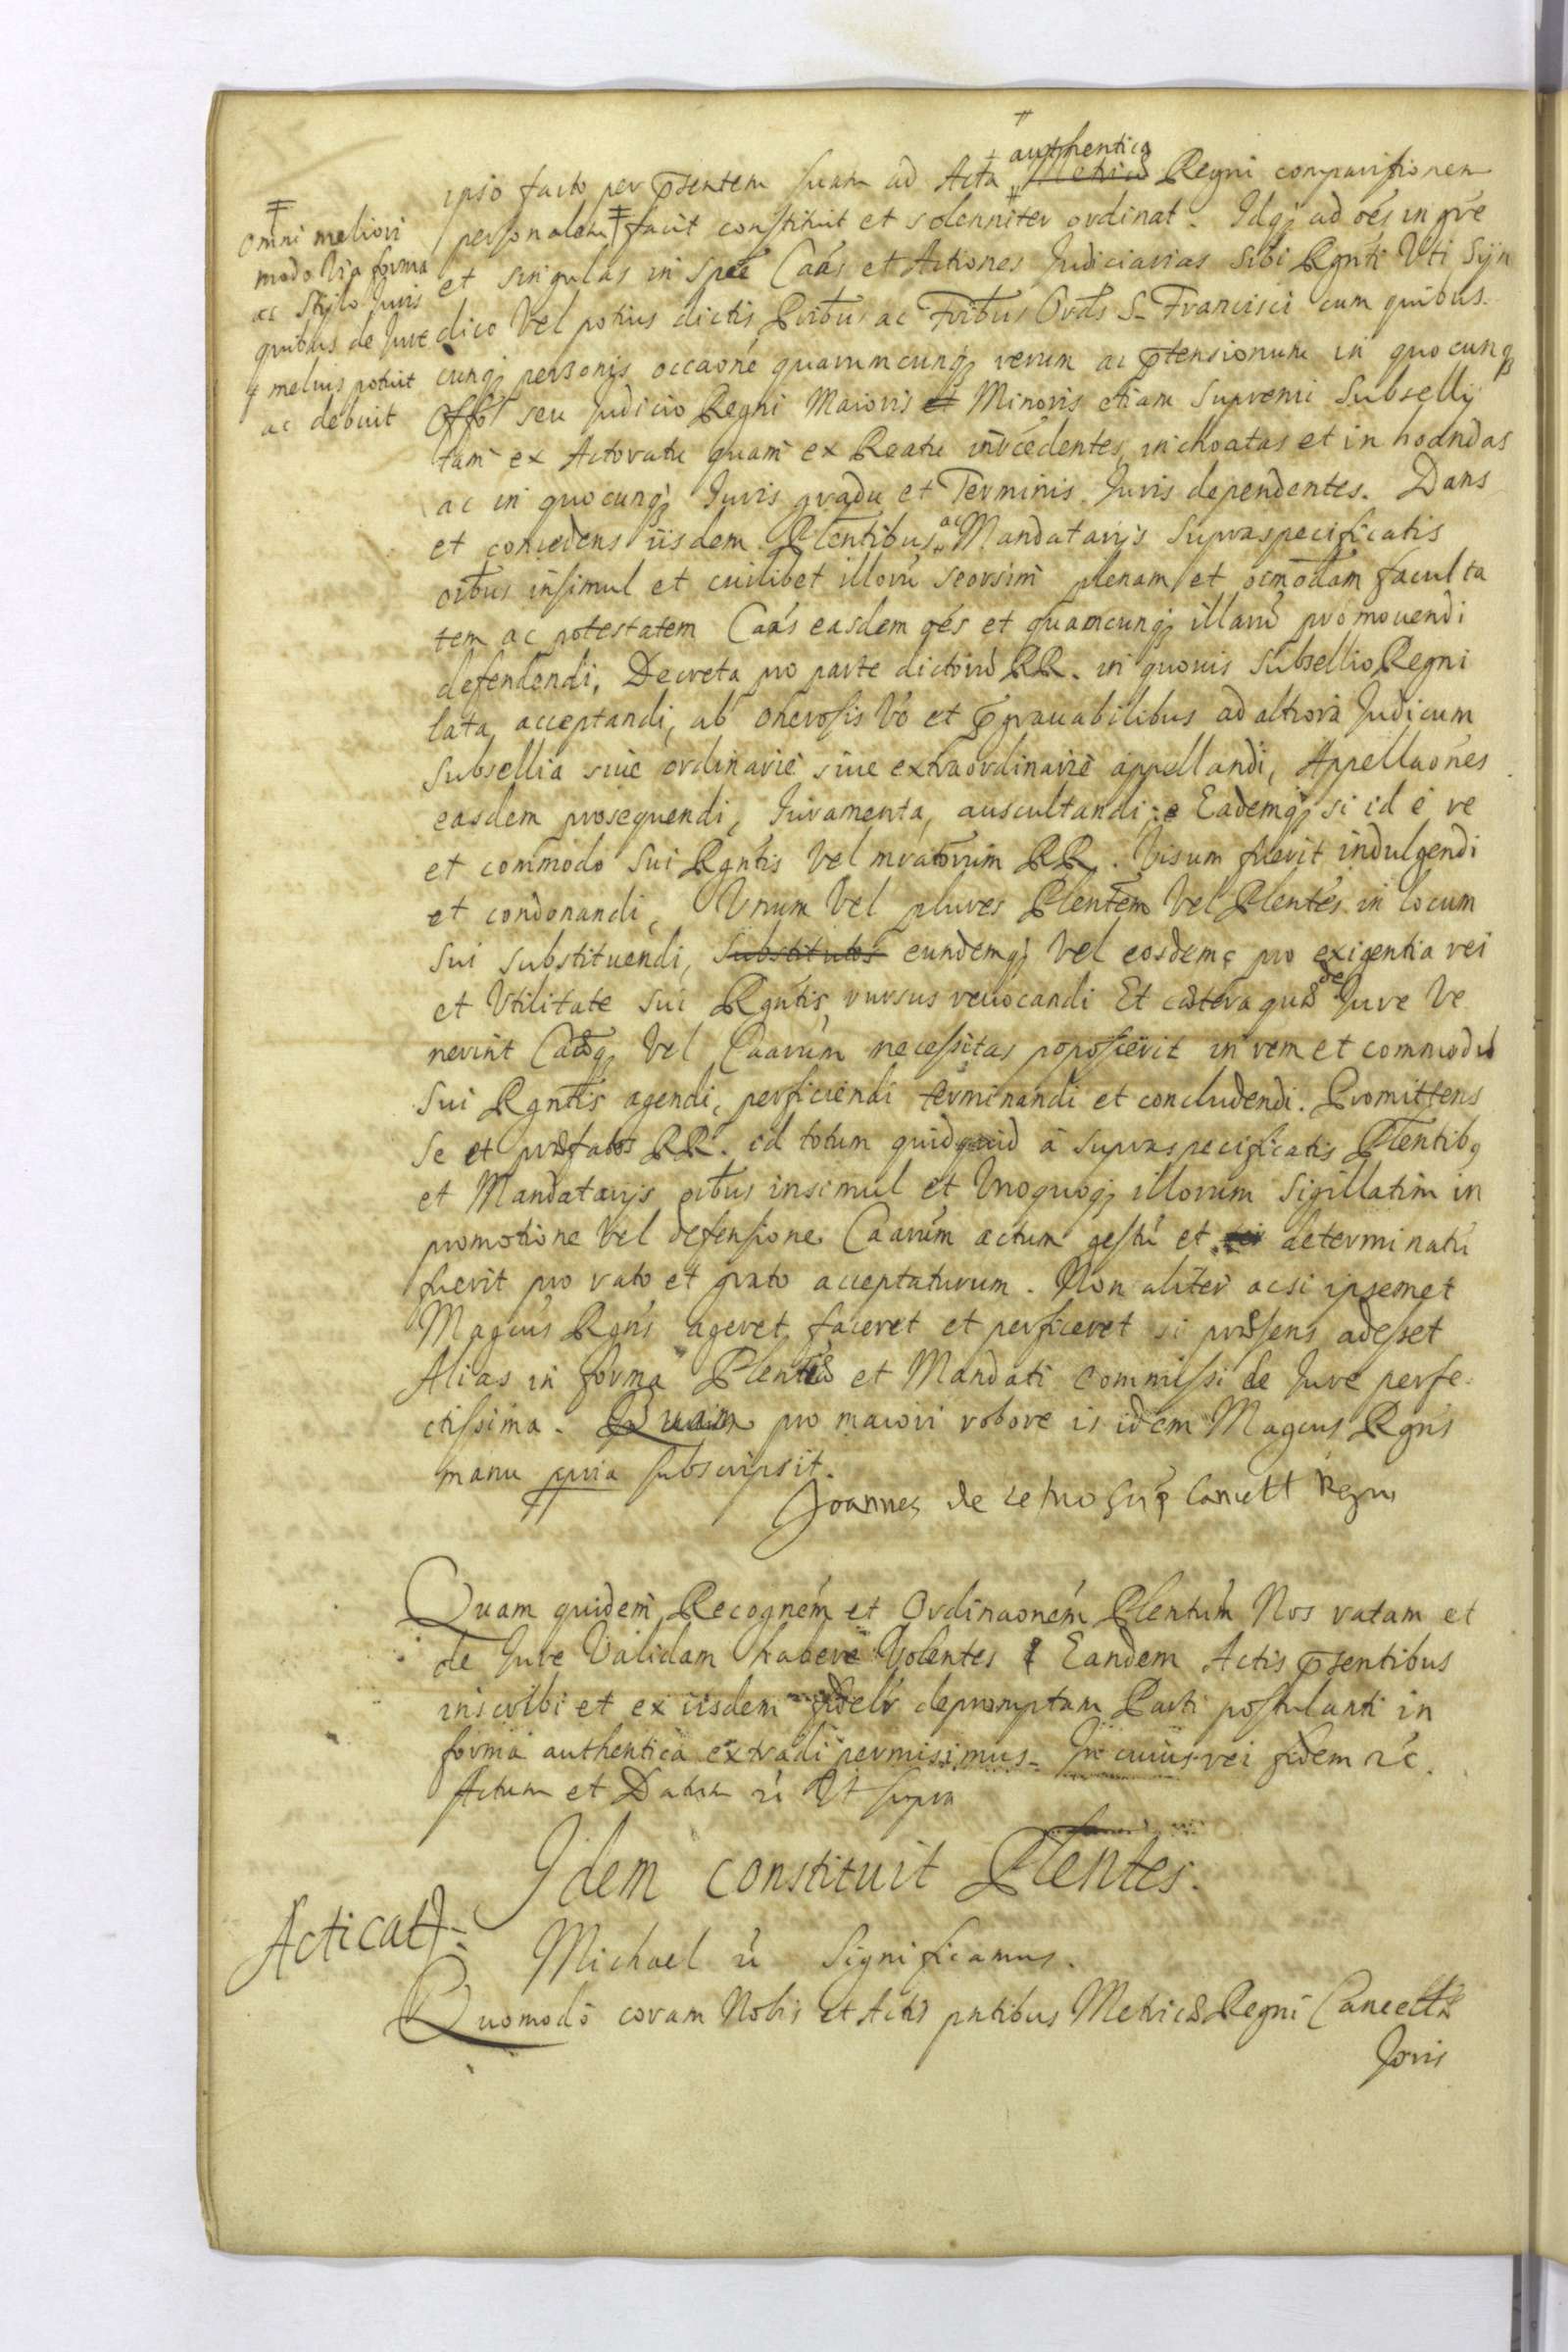 authentica
ipso facto per p̃sentem suam ad Acta Metricæ Regni comparitionem
personalem ‡ facit constituit et solenniter ordinat. Idq; ad oẽs in gr̃e
‡
omni meliori
modo via forma
ac Stylo Juris
quibus de Jure
q̃ melius potuit
ac debuit
et singulas in sp̃ee Caãs et Actiones Judiciarias sibi Rgñti Vti Syn
dico Vel potius dictis Pr̃ibus ac Fr̃ibus Ord̃s S. Francisci cum quibus
cunq; personis occaõne quarumcunq; rerum ac p̃tensionum in quocunq;
Off̃o seu Judicio Regni Maioris et Minoris etiam Supremi Subsellij
tam ex Actoratu quam ex Reatu intcedentes, inchoatas et inhoandas
ac in quocunq; Juris gradu et Terminis Juris dependentes. Dans
et concedens iisdem Pl̃entibus ac Mandatarijs supraspecificatis
oĩbus insimul et cuilibet illorũ seorsim plenam et oĩmodam faculta
tem ac potestatem Caãs easdem oẽs et quamcunq; illarũ promouendi
defendendi, Decreta pro parte dictorũ RR. in quouis Subsellio Regni
lata, acceptandi, ab onerosis Võ et p̃grauabilibus ad altiora Judicum
Subsellia siue ordinarie siue extraordinarie appellandi, Appellaõnes
easdem prosequendi, Juramenta, auscultandi; Eademq; si id ẽ re
et commodo sui Rgñtis vel mratorum RR. Visum fuerit indulgendi
et condonandi, Vnum Vel plures Pl̃entem Vel Pl̃entes in locum
sui substituendi, substitutos eundemq; Vel eosdemq; pro exigentia rei
et Vtilitate sui Rgñtis, rursus reuocandi Et cætera quæ de Jure Ve
nerint Caæq; Vel Caarũm necessitas poposcerit in rem et commodũ
sui Rgñtis agendi, perficiendi terminandi et concludendi. Promittens
se et præfatos RR. id totum quidquid a supraspecificatis Pl̃entibq
et Mandatarijs oĩbus insimul et Vnoquoq; illorum sigillatim in
promotione Vel defensione Caarũm actum gestũ et ter determinatũ
fuerit pro rato et grato acceptaturum. Non aliter acsi ipsemet
Magcũs Rgñs ageret, faceret et perficeret si præsens adesset
Alias in forma Plentiæ et Mandati commissi de Jure perfe
ctissima. Quam pro maiori robore is idem Magcus Rgñs
manu ppria subscripsit.
Joannes de Cancell Regni
Quam quidem Recognẽm et Ordinaonẽm Plentũm Nos ratam et
de Jure Validam habere Volentes Eandem Actis p̃sentibus
inscribi et ex iisdem fidelr̃ depromptam Parti postulanti in
forma authentica extradi permisimus. In cuius rei fidem rc̃.
Actum et Datum rc̃ Vt supra
Idem constituit Pl̃entes.
Acticat.
Michael rc̃ Significamus.
Quomodo coram Nobis et Actis pñtibus Metricæ Regni Cancellæ
Joris